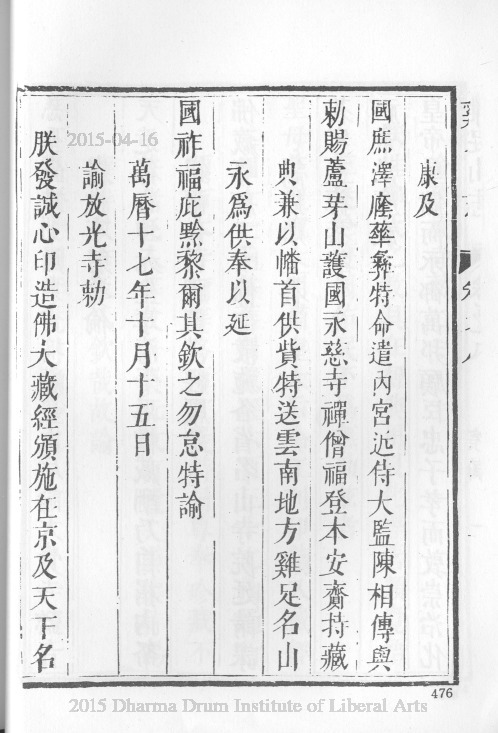 康及
國庶澤隆華彝特命遣內宮近侍大監陳相傳與
勅賜蘆芽山護國永慈寺禪僧福登本安齎持藏
典兼以幡首供貲特送雲南地方雞足名山
永爲供奉以延
國祚福庇黔黎爾其欽之勿怠特諭
萬曆十七年十月十五日
諭放光寺勅
朕發誠心印造佛大藏經頒施在京及天下名
476
2015-04-16
2015 Dharma Drum Institute of Liberal Arts